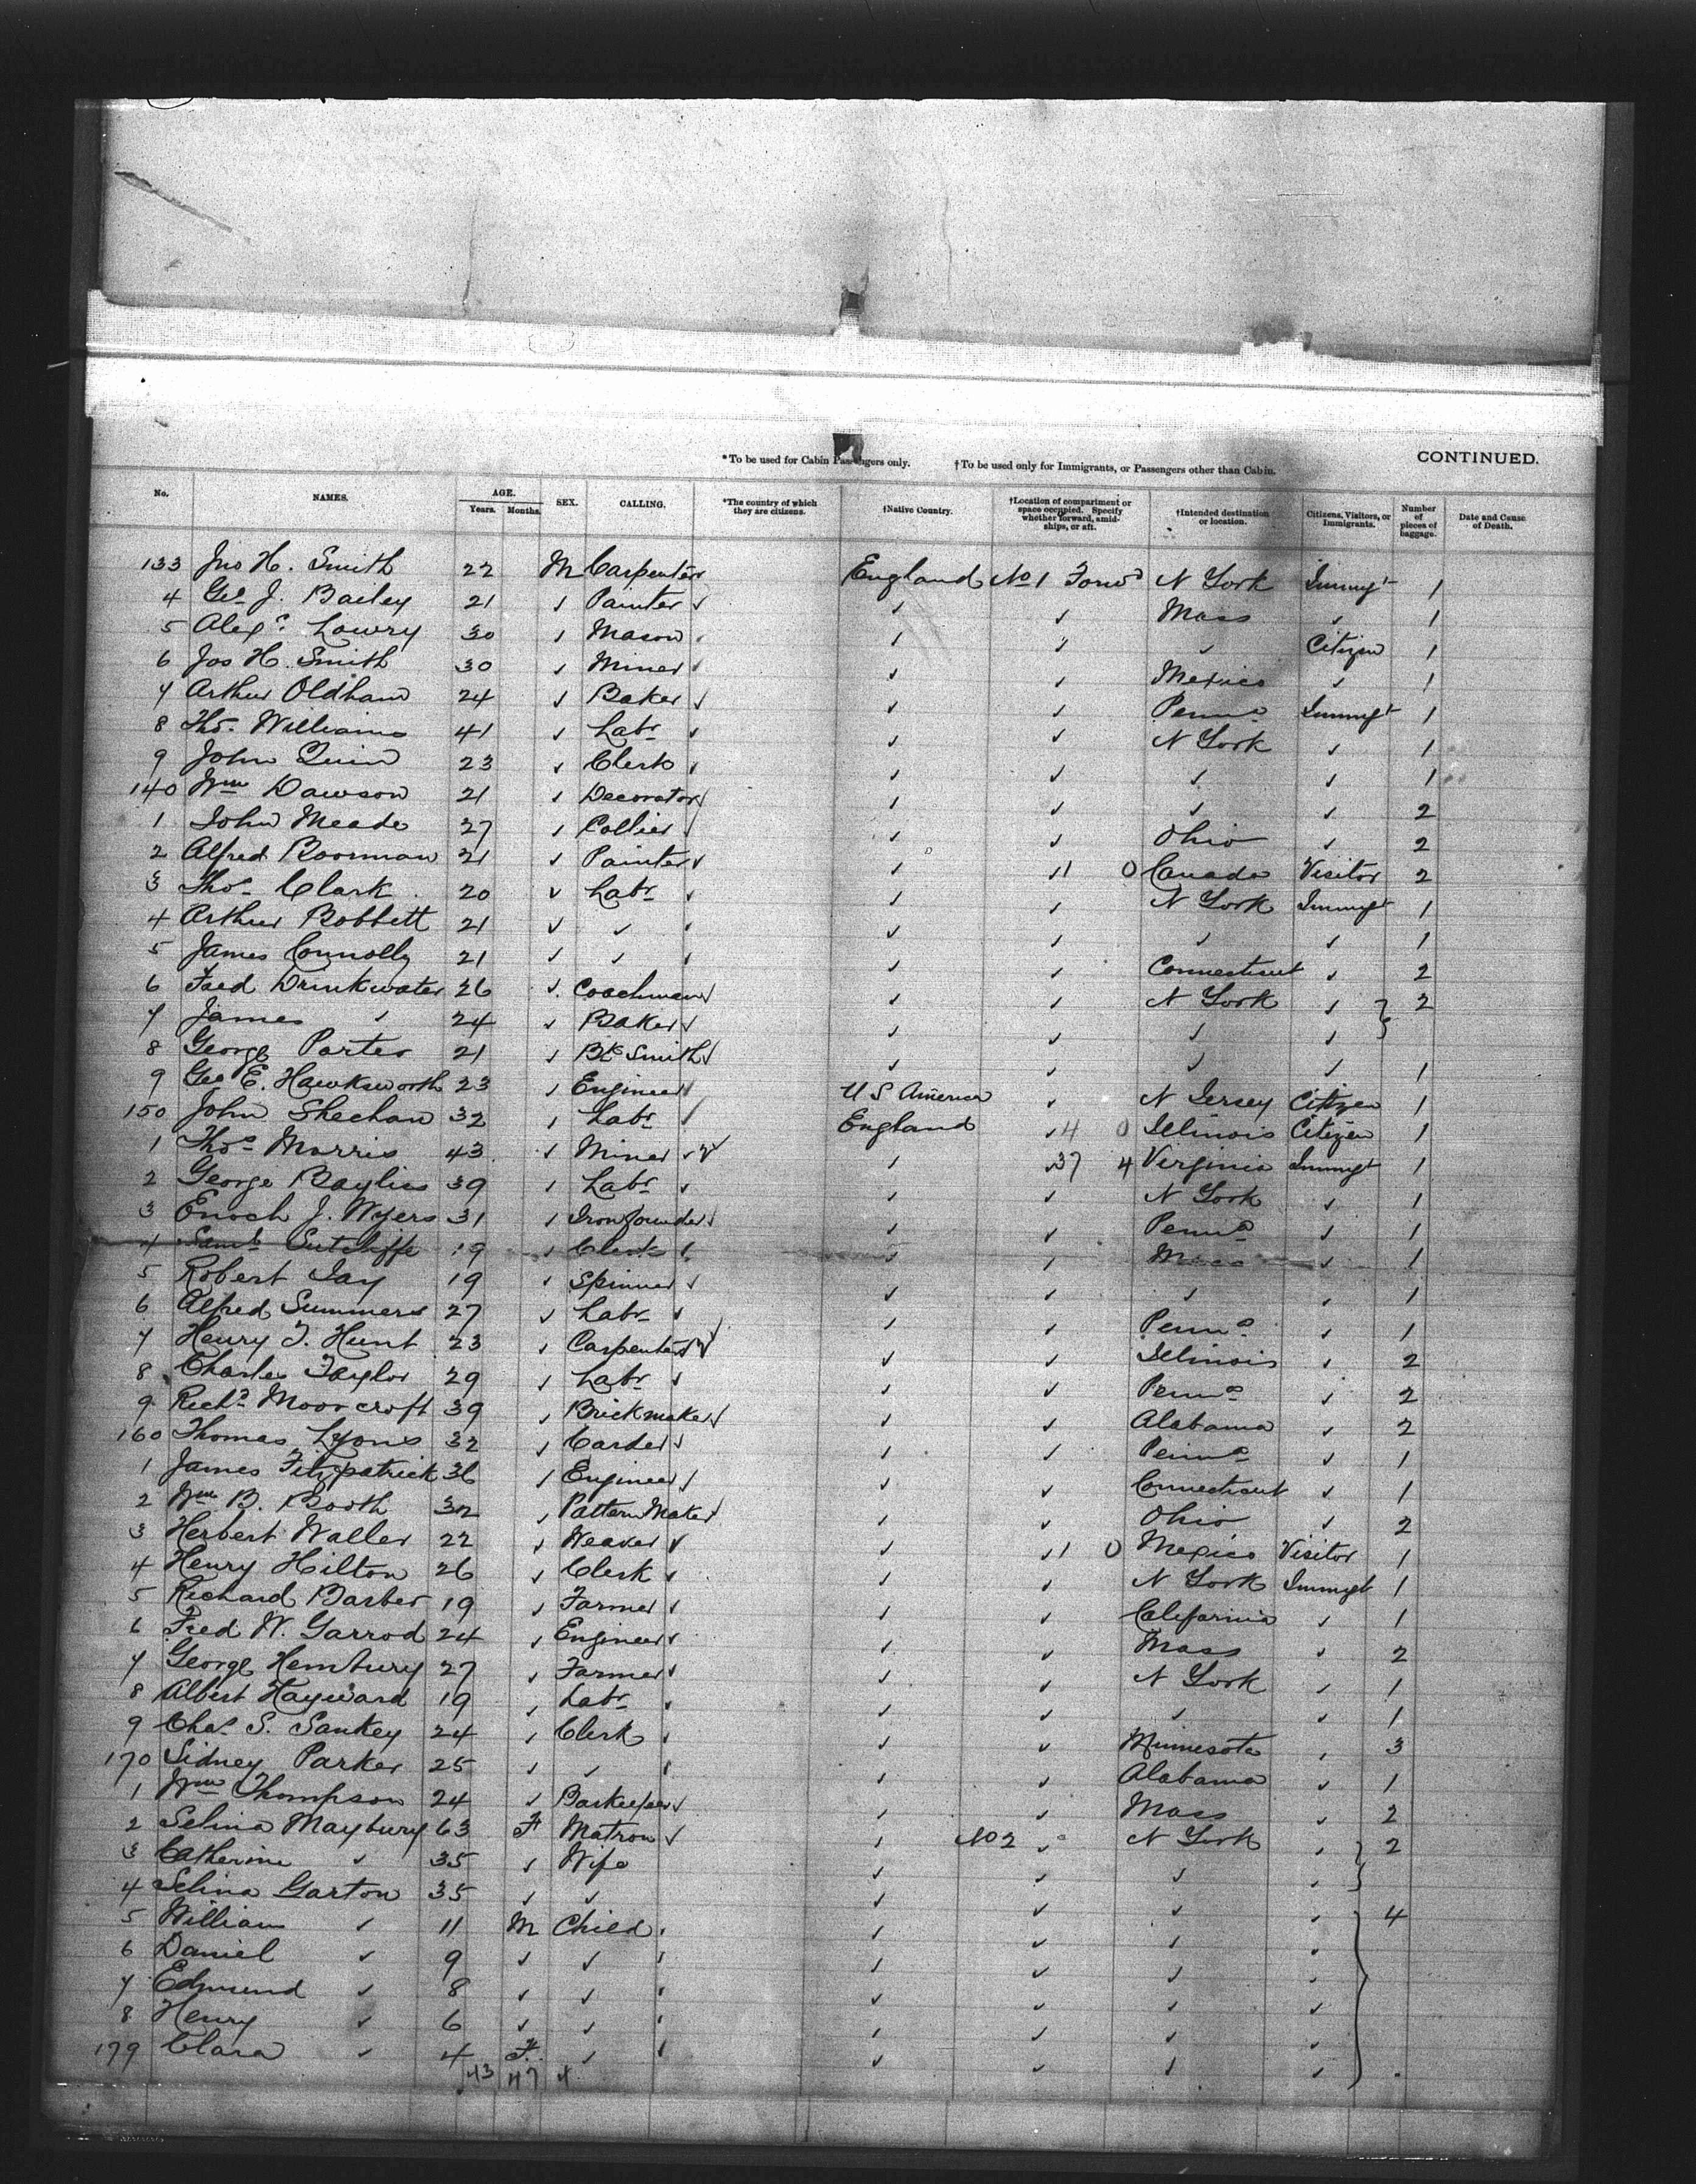 *To be used for Cabin Passengers only. †To be used only for Immigrants, or Passengers other than Cabin. CONTINUED.
No. NAMES. AGE. Years. Months. SEX. CALLING. *The country of which they are citizens. †Native Country. †Location of compartment or space occupied. Specify whether forward, amidships, or aft. †Intended destination or location. Citizens, Visitors, or Immigrants. Number of pieces of baggage. Date and Cause of Death.
133 Jno H. Smith 22 M Carpenter England No 1 Forwd N York Immigt 1
4 Geo J. Bailey 21 ✓ Painter ✓ ✓ ✓ Mass ✓ 1
5 Alexr Lowry 30 ✓ Mason ✓ ✓ ✓ Citizen 1
6 Jos H. Smith 30 ✓ Miner ✓ ✓ Mexico ✓ 1
7 Arthur Oldham 24 ✓ Baker ✓ ✓ ✓ Penna Immigt 1
8 Thos Williams 41 ✓ Labr ✓ ✓ ✓ N York ✓ 1
9 John Quinn 23 ✓ Clerk ✓ ✓ ✓ ✓ 1
140 Wm Dawson 21 ✓ Decorator ✓ ✓ ✓ ✓ 2
1 John Meade 27 ✓ Collier ✓ ✓ Ohio ✓ 2
2 Alfred Boorman 21 ✓ Painter ✓ ✓ ✓1 0 Canada Visitor 2
3 Thos Clark 20 ✓ Labr ✓ ✓ ✓ N York Immigt 1
4 Arthur Bobbett 21 ✓ ✓ ✓ ✓ ✓ ✓ 1
5 James Connolly 21 ✓ ✓ ✓ ✓ Connecticut ✓ 2
6 Fred Drinkwater 26 ✓ Coachman ✓ ✓ ✓ N York ✓ } 2
7 James ✓ 24 ✓ Baker ✓ ✓ ✓ ✓ ✓ }
8 George Porter 21 ✓ Bk Smith ✓ ✓ ✓ ✓ ✓ 1
9 Geo E. Hawksworth 23 ✓ Engineer U S America ✓ N Jersey Citizen 1
150 John Sheehan 32 ✓ Labr England ✓4 0 Illinois Citizen 1
1 Thos Morris 43 ✓ Miner ✓ ✓ ✓37 4 Virginia Immigt 1
2 George Bayliss 39 ✓ Labr ✓ ✓ ✓ N York ✓ 1
3 Enoch J. Wyers 31 ✓ Iron founder ✓ ✓ ✓ Penna ✓ 1
4 Saml Sutcliffe 19 ✓ Clerk ✓ ✓ Mass ✓ 1
5 Robert Jay 19 ✓ Spinner ✓ ✓ ✓ ✓ ✓ 1
6 Alfred Summers 27 ✓ Labr ✓ ✓ ✓ Penna ✓ 1
7 Henry T. Hunt 23 ✓ Carpenter ✓ ✓ ✓ Illinois ✓ 2
8 Charles Taylor 29 ✓ Labr ✓ ✓ ✓ Penna ✓ 2
9 Richd Moorcroft 39 ✓ Brickmaker ✓ ✓ ✓ Alabama ✓ 2
160 Thomas Lyons 32 ✓ Carder ✓ ✓ ✓ Penna ✓ 1
1 James Fitzpatrick 36 ✓ Engineer ✓ ✓ Connecticut ✓ 1
2 Wm B. Booth 32 ✓ Pattern Maker ✓ ✓ Ohio ✓ 2
3 Herbert Waller 22 ✓ Weaver ✓ ✓ ✓1 0 Mexico Visitor 1
4 Henry Hilton 26 ✓ Clerk ✓ ✓ ✓ N York Immigt 1
5 Richard Barber 19 ✓ Farmer ✓ ✓ ✓ California ✓ 1
6 Fred W. Garrod 24 ✓ Engineer ✓ ✓ ✓ Mass ✓ 2
7 George Hembury 27 ✓ Farmer ✓ ✓ ✓ N York ✓ 1
8 Albert Hayward 19 ✓ Labr ✓ ✓ ✓ ✓ 1
9 Chas S. Sankey 24 ✓ Clerk ✓ ✓ Minnesota ✓ 3
170 Sidney Parker 25 ✓ ✓ ✓ ✓ Alabama ✓ 1
1 Wm Thompson 24 ✓ Barkeeper ✓ ✓ ✓ Mass ✓ 2
2 Selina Maybury 63 F Matron ✓ ✓ No 2 ✓ N York ✓ } 2
3 Catherine ✓ 35 ✓ Wife ✓ ✓ ✓ ✓ }
4 Selina Garton 35 ✓ ✓ ✓ ✓ ✓ ✓ 4
5 William ✓ 11 M Child ✓ ✓ ✓ ✓
6 Daniel ✓ 9 ✓ ✓ ✓ ✓ ✓ ✓
7 Edmund ✓ 8 ✓ ✓ ✓ ✓ ✓ ✓
8 Henry ✓ 6 ✓ ✓ ✓ ✓ ✓ ✓
179 Clara ✓ 4 F ✓ ✓ ✓ ✓ ✓
43 47 4